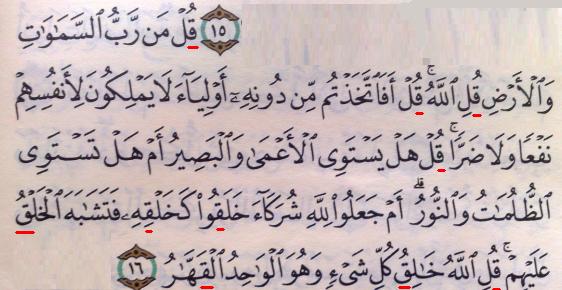 ١٥ قُلْ مَن رَّبُّ ٱلسَّمَٰوَٰتِ
وَٱلْأَرْضِ قُلِ ٱللَّهُ ۚ قُلْ أَفَٱتَّخَذْتُم مِّن دُونِهِۦٓ أَوْلِيَآءَ لَا يَمْلِكُونَ لِأَنفُسِهِمْ
نَفْعًا وَلَا ضَرًّا ۚ قُلْ هَلْ يَسْتَوِى ٱلْأَعْمَىٰ وَٱلْبَصِيرُ أَمْ هَلْ تَسْتَوِى
ٱلظُّلُمَٰتُ وَٱلنُّورُ ۗ أَمْ جَعَلُوا۟ لِلَّهِ شُرَكَآءَ خَلَقُوا۟ كَخَلْقِهِۦ فَتَشَٰبَهَ ٱلْخَلْقُ
عَلَيْهِمْ ۚ قُلِ ٱللَّهُ خَٰلِقُ كُلِّ شَىْءٍ وَهُوَ ٱلْوَٰحِدُ ٱلْقَهَّٰرُ ١٦